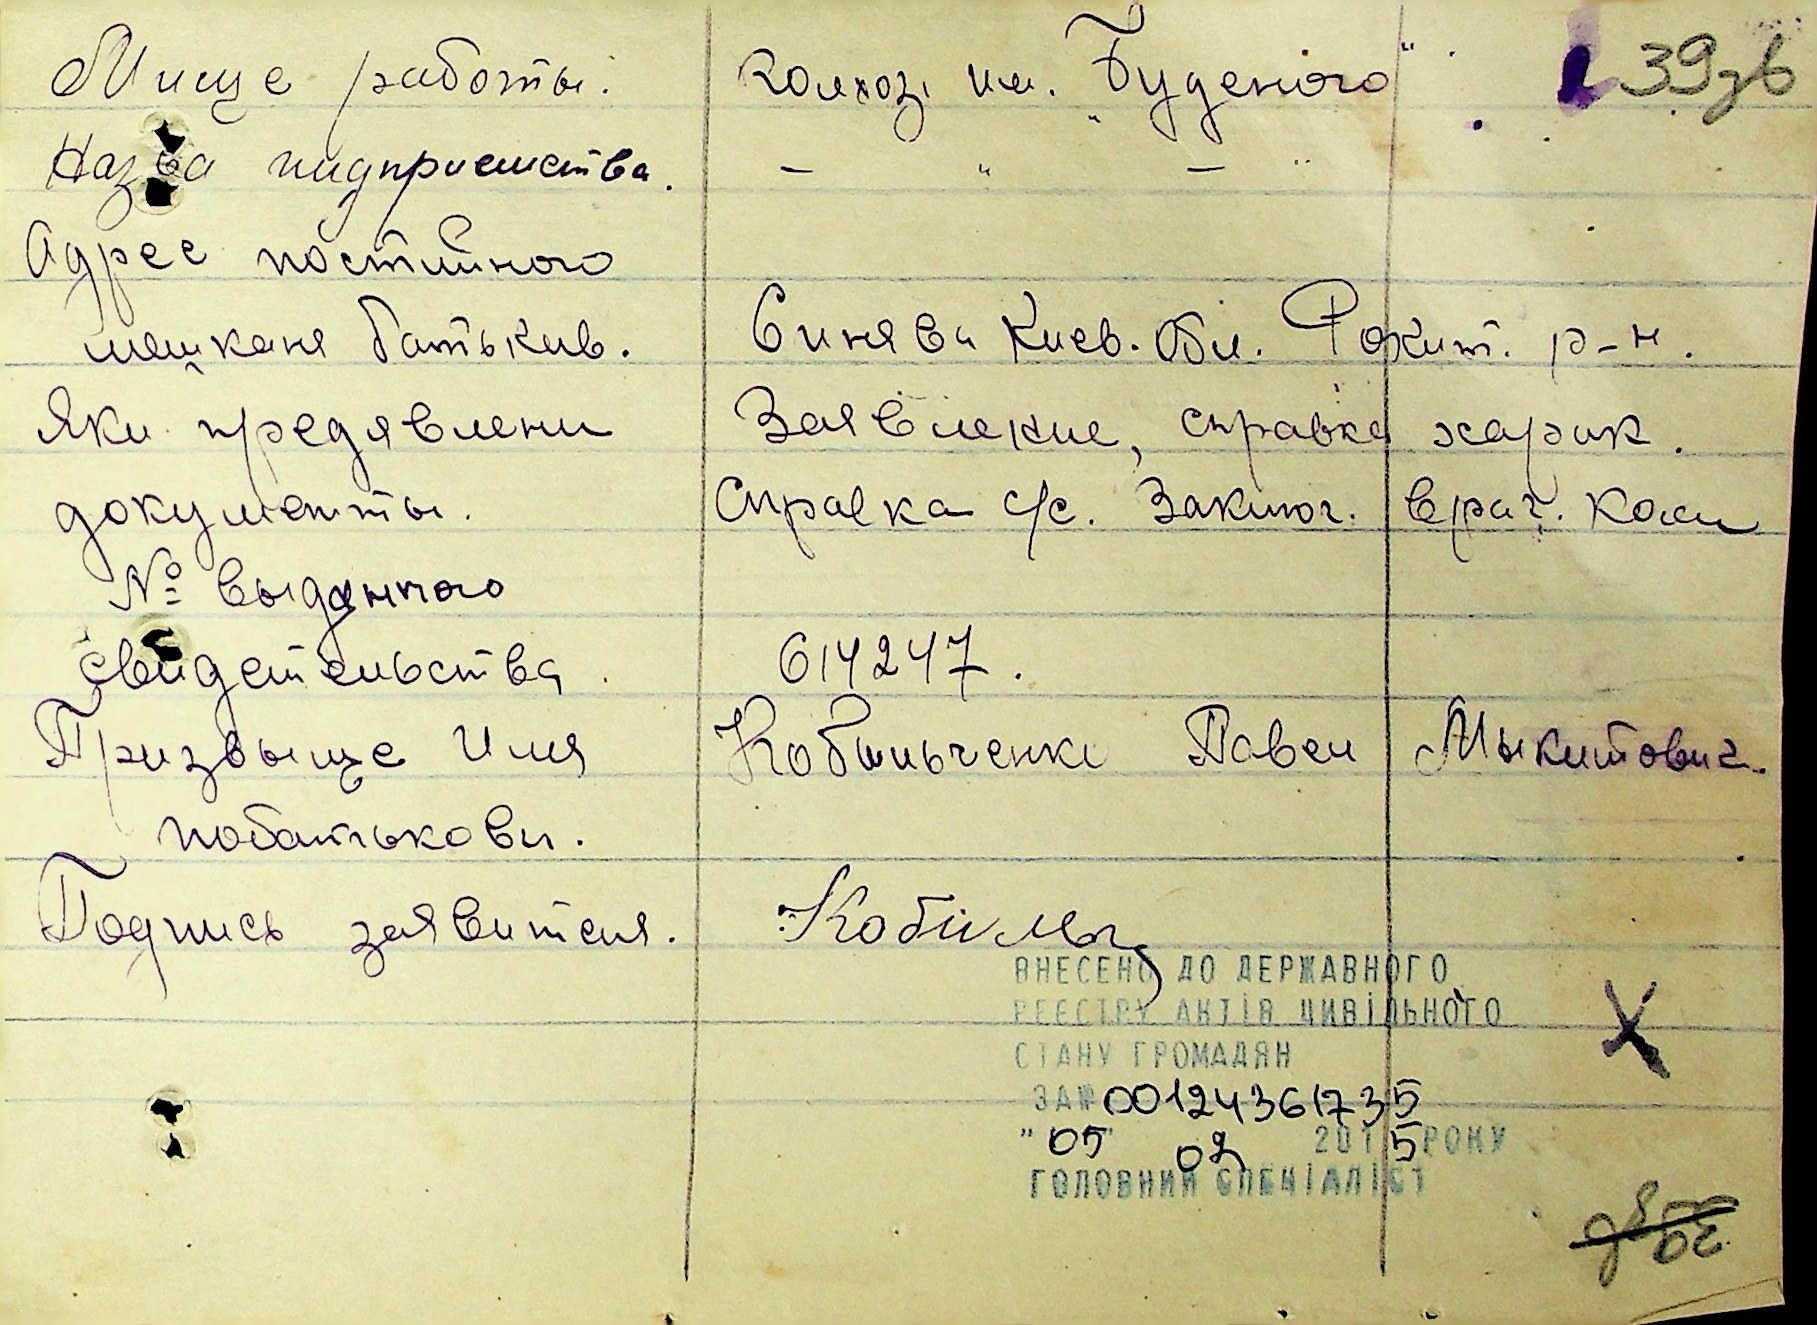 Мисце работы. колхоз им. "Буденого" 39зв
Назва пидприемства. – " – "
Адрес постийного
мешканя батькив. Синява Киев. Обл. Рокит. р-н.
Яки предявлени Заявление, справка харак.
документы. Справка с/с. Заключ. врач. коми
№ выданного
свидетельства. 614247.
Призвыще Имя Кобыльченко Павел Мыкитович.
побатькови.
Подпись заявителя.
ВНЕСЕНО ДО ДЕРЖАВНОГО
РЕЄСТРУ АКТІВ ЦИВІЛЬНОГО
СТАНУ ГРОМАДЯН
ЗА № 00124361735
"05" 02 2015 РОКУ
ГОЛОВНИЙ СПЕЦІАЛІСТ